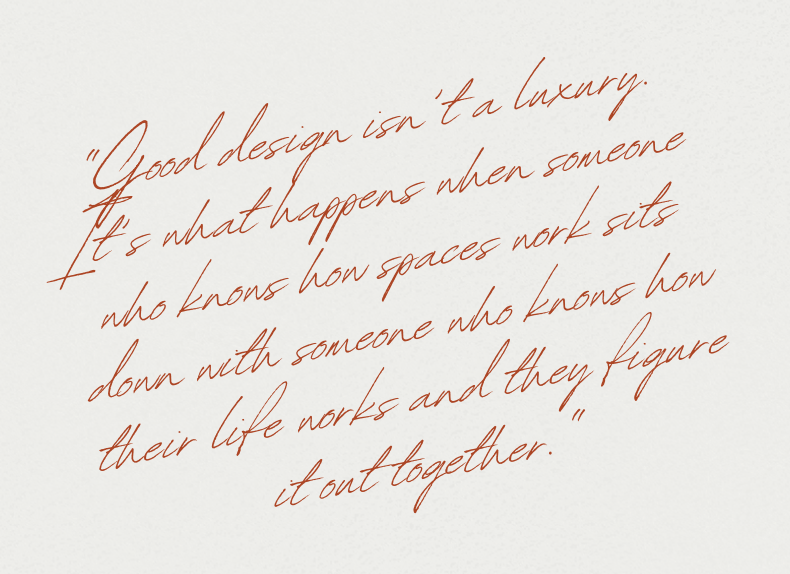 "Good design isn't a luxury.
It's what happens when someone
who knows how spaces work sits
down with someone who knows how
their life works and they figure
it out together."